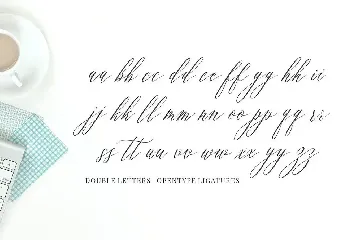 aa bb cc dd ee ff gg hh ii
jj kk ll mm nn oo pp qq rr
ss tt uu vv ww xx yy zz
DOUBLE LETTERS - OPENTYPE LIGATURES